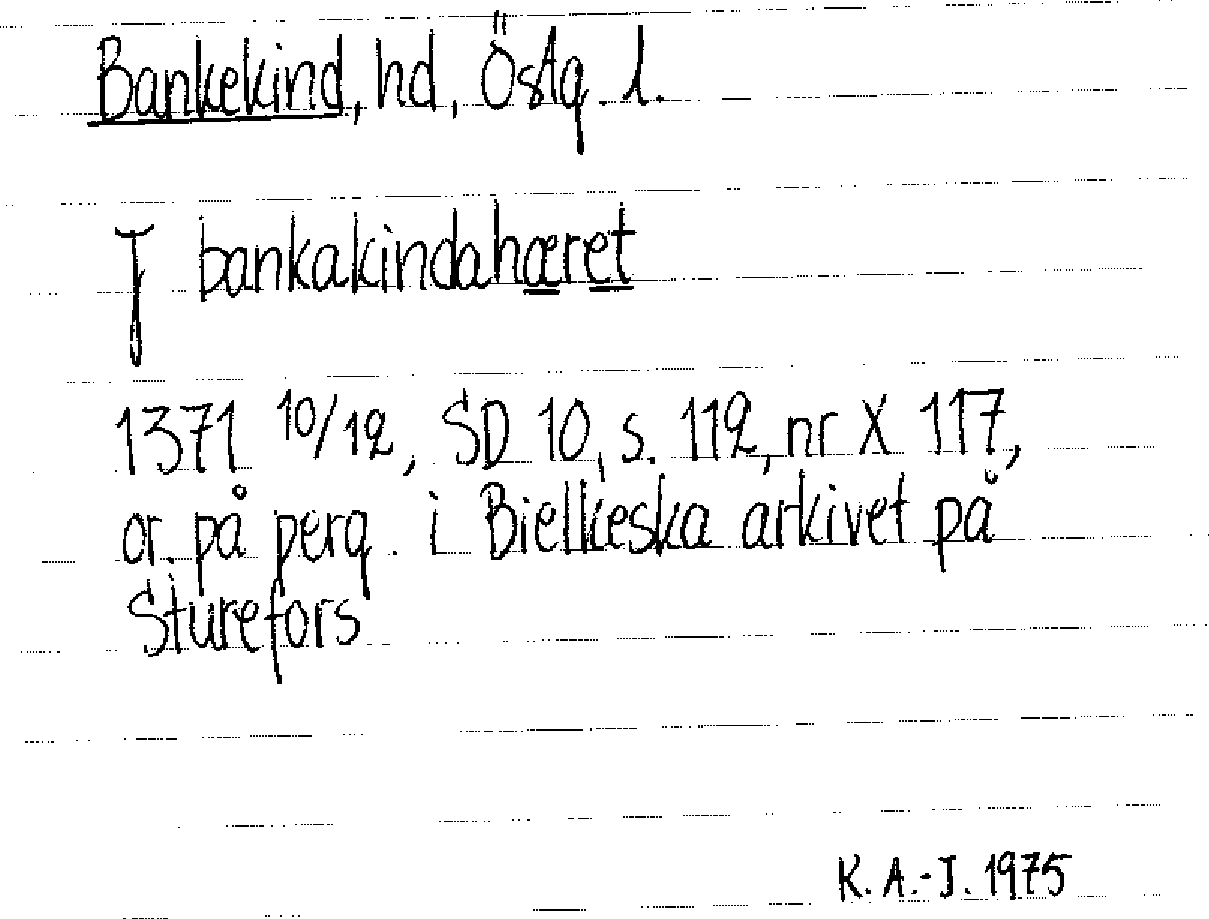 Bankekind, hd, Östg. l.
J bankakindahæret
1371 10/12, SD 10, s. 112, nr X 117,
or. på perg. i Bielkeska arkivet på
Sturefors
K. A.-J. 1975